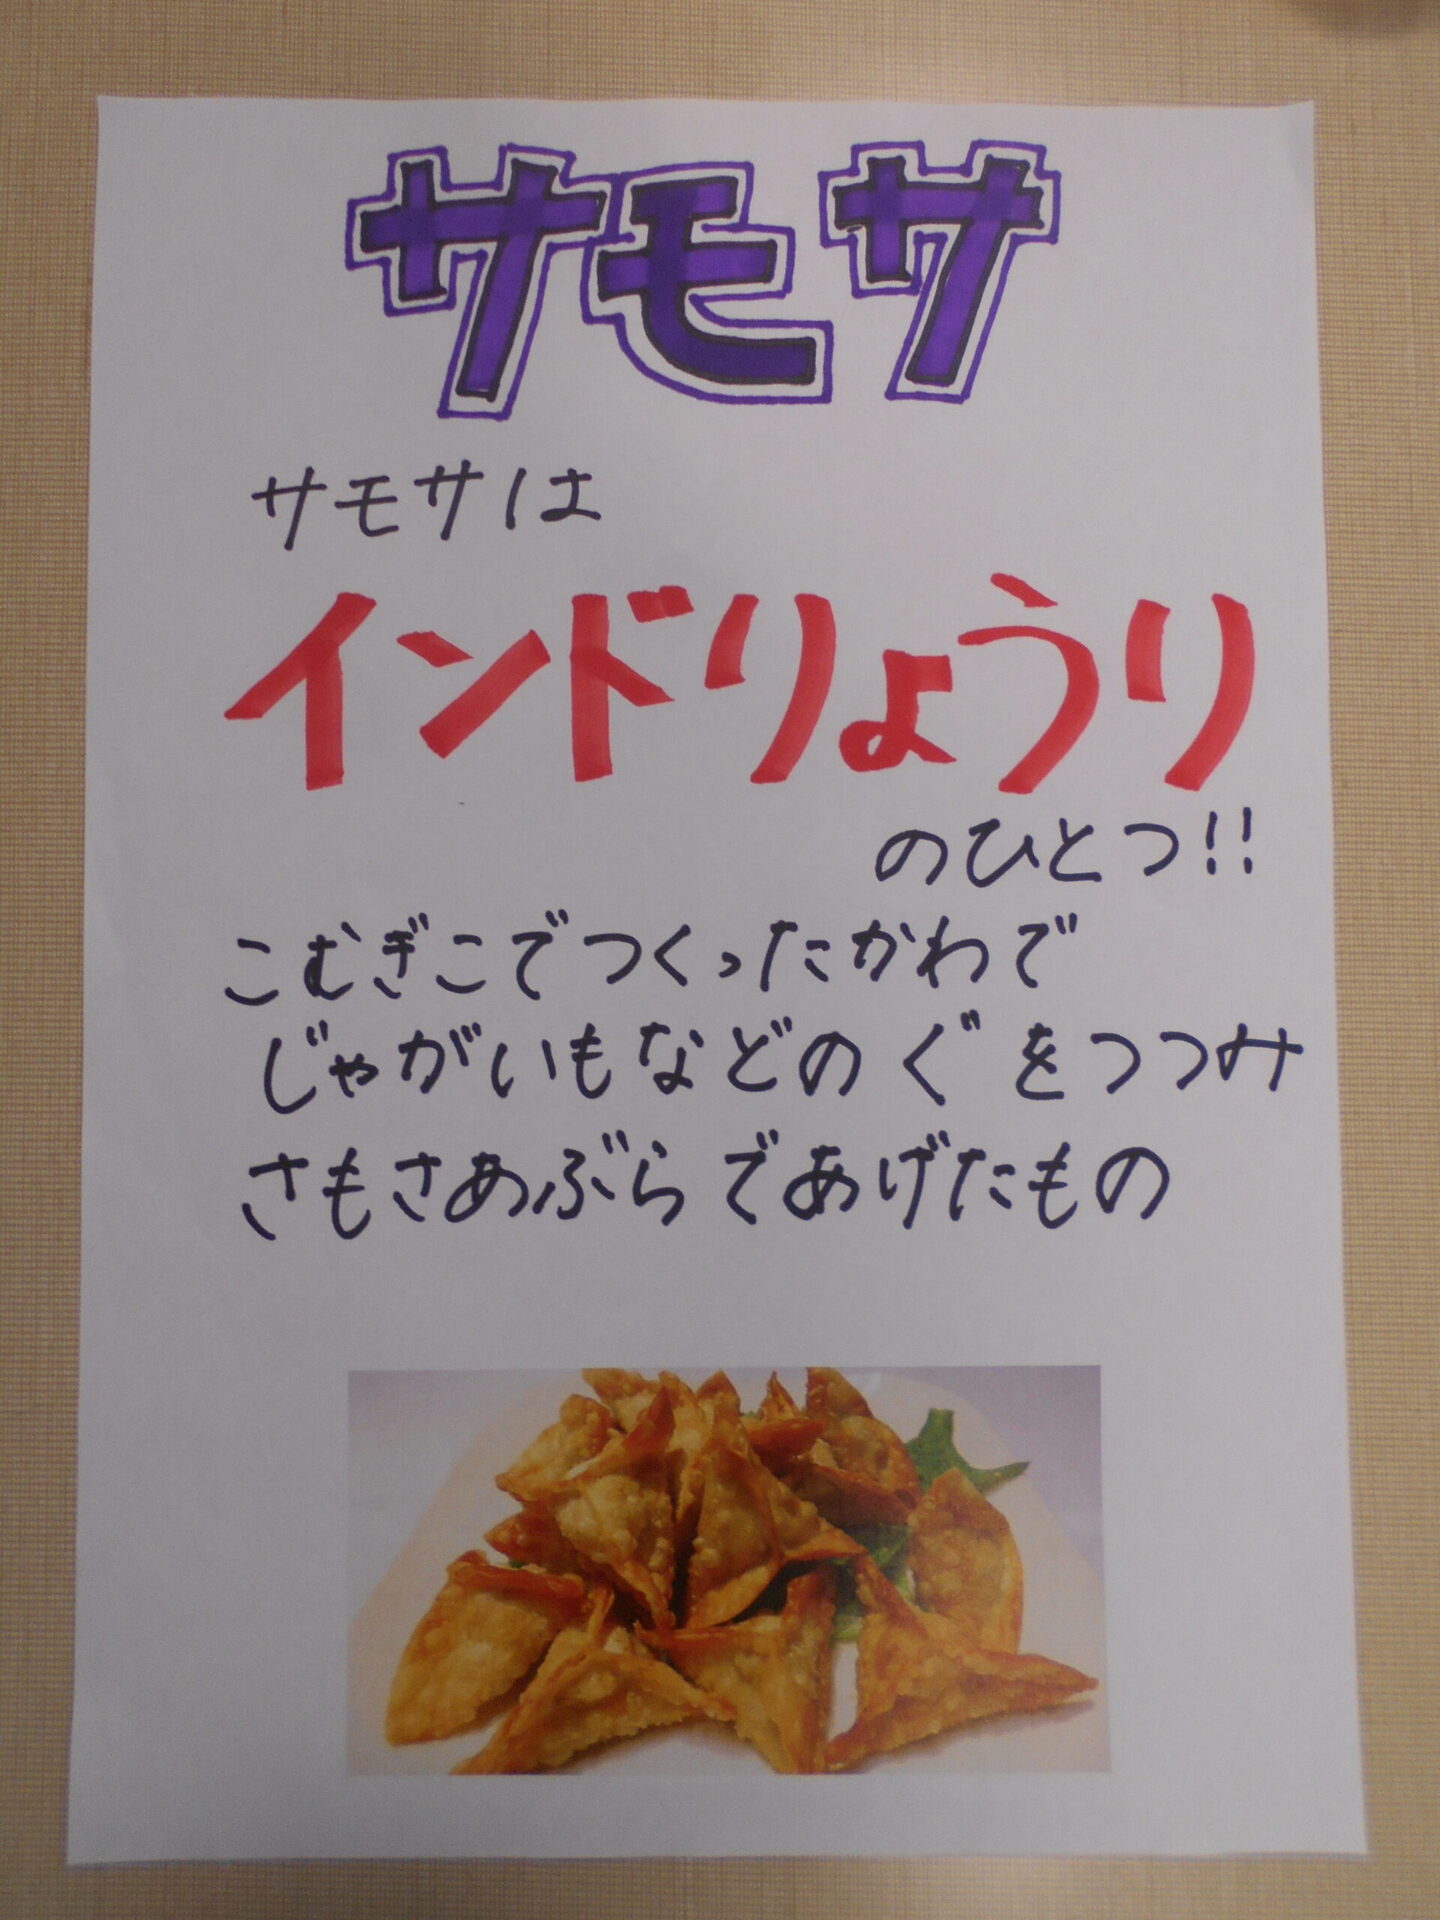 サモサ
サモサは
インドりょうり
のひとつ!!
こむぎこでつくったかわで
じゃがいもなどの ぐ をつつみ
さもさあぶら であげたもの